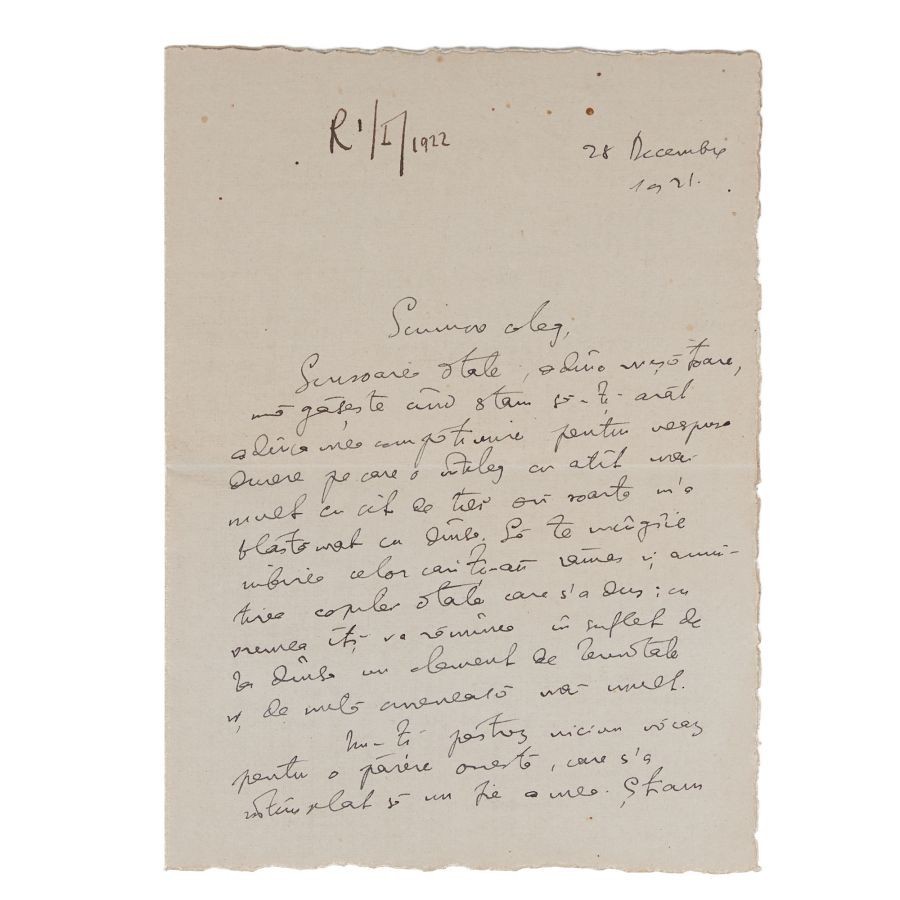 R 1/I/1922
28 Decembre
1921.
Scumpe coleg,
Scrisoarea d-tale, adînc mișcătoare,
mă găsește cînd stam să-ți arăt
adînca mea compătimire pentru nespusa
durere pe care o înțeleg cu atît mai
mult cu cît de trei ori soarta m'a
blăstămat cu dînsa. Să te mîngîie
iubirea celor cari ți-au rămas și amin-
tirea copilei d-tale care s'a dus: cu
vremea îți va rămînea în suflet de
la dînsa un element de seninătate
și de milă omenească mai mult.
Nu-ți păstrez niciun năcaz
pentru o părere onestă, care s'a
întîmplat să nu fie a mea. Știam